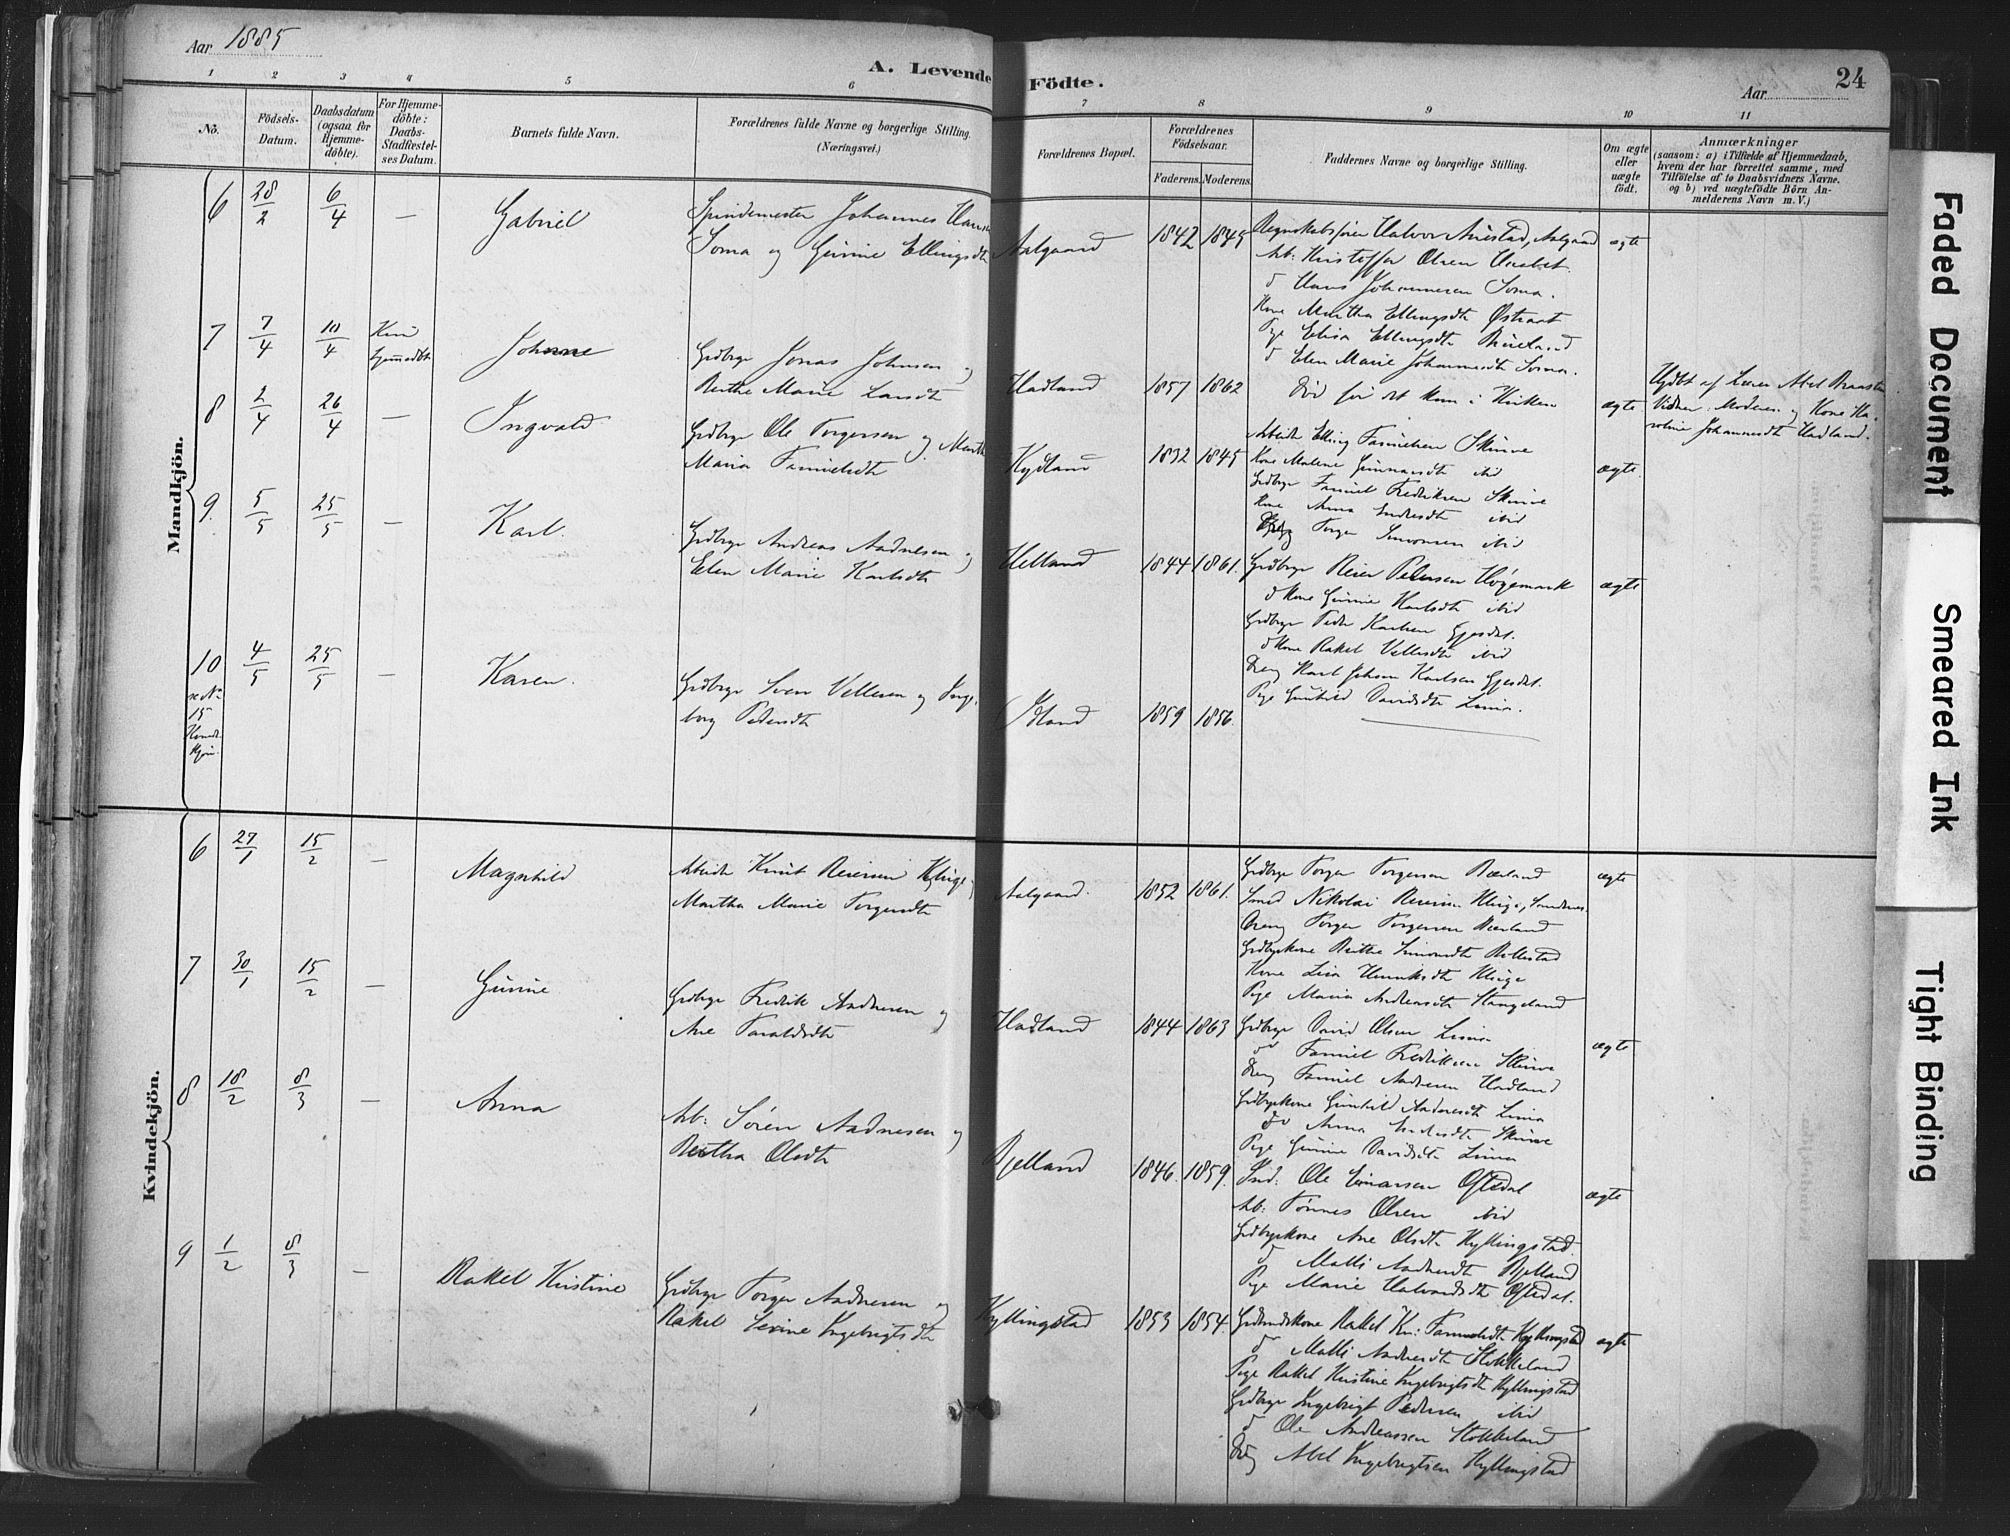 Aar 1885
A. Levende Födte.
Aar
24
1 2 3 4 5 6 7 8 9 10 11
No.
Födsels-Datum.
Daabsdatum (ogsaa for Hjemme-döbte).
For Hjemme-döbte: Daabs-Stadfæstel-ses Datum.
Barnets fulde Navn.
Forældrenes fulde Navne og borgerlige Stilling. (Næringsvei.)
Forældrenes Bopæl.
Forældrenes Födselsaar.
Faderens. Moderens.
Faddernes Navne og borgerlige Stilling.
Om ægte eller uægte födt.
Anmærkninger
(saasom: a) i Tilfælde af Hjemmedaab,
hvem der har forrettet samme, med
Tilföielse af to Daabsvidners Navne,
og b) ved uægtefödte Börn An-
melderens Navn m. V.)
Mandkjön.
6 28/2 6/4 — Gabriel
Spindemester Johannes Hansen
Soma og Gunine Ellingsdtr
Aalgaard 1842 1845
Regnskabsfører Halvor Auestad, Aalgaard ægte
Arb: Kristoffer Olsen
d Hans Johannesen Soma.
Kone Martha Ellingsdtr Østraat
Pige Elisa Ellingsdtr
d Elen Marie Johannesdtr Soma.
7 7/4 10/4 Kun hjemmedøbt Johanne
Grdbrgr Jonas Johnsen og
Berthe Marie Larsdtr
Hadland 1857 1862
Død før det kom i Kirken ægte
Hjdbt af Lærer Abel Braasten
Vidner: Moderen og Kone Ka-
roline Johannesdtr Hadland.
8 2/4 26/4 — Ingvald
Grdbrgr Ole Torgersen og Marth
Maria Tamuelsdtr
Kydland 1832 1845
Arbeidr Elling Samuelsen Skurve ægte.
Kone Malene Gunnarsdtr ibid
Grdbrgr Samuel Fredriksen Skurve
Kone Anna ibid
Torger Simonsen ibid
9. 5/5 25/5 — Karl.
Grdbrgr Andreas Aadnesen og
Elen Marie Karlsdtr
Helland 1844 1861.
Grdbrgr Reier Pedersen Høgemark ægte
d Kone Gunine Karlsdtr ibid
Grdbrgr Peder Karlsen Gjesdal.
d Kone Rakel Vellesdtr ibid
Dreng Karl Johan Karlsen Gjesdal.
Pige Gunhild Davidsdtr Lima.
10 4/5 25/5 — Karen.
se No 15 Kvindekjøn.
Grdbrgr Sven Vellesen og Inge-
borg Pedersdtr
Idland 1859 1856.
Kvindekjön.
6 27/1 15/2 — Magnhild
Arbeidr Knut Reiersen Kluge og
Martha Marie Torgersdtr
Aalgaard. 1852 1861.
Grdbrgr Torger Torgersen Bærland ægte
Smed Nikolai Reiersen Kluge, Sandnes.
Dreng Torger Torgersen Bærland
Grdbrgkone Berthe Simonsdtr Bollestad
Kone Lisa Henriksdtr Kluge
Pige Maria Andreasdtr Stangeland
7 30/1 15/2 — Gunine
Grdbrgr Fredrik Aadnesen og
Ane Taraldsdtr
Hadland 1844 1863
Grdbrgr David Olsen Lima ægte
do Samuel Fredriksen Skurve
Dreng Samuel Aadnesen Hadland
Grdbrgkone Gunhild Aadnesdtr Lima
do Anna Skurve
Pige Gunine Davidsdtr Lima
8 18/2 8/3 — Anna
Arb: Sören Aadnesen og
Bertha Olsdtr
Bjelland 1846. 1859.
Ind: Ole Einarsen Oftedal ægte
Arb: Tönnes Olsen ibid
Grdbrgkone Ane Olsdtr Kyllingstad.
d Malli Aadnesdtr Bjelland
Pige Marie Halvorsdtr Oftedal.
9 1/2 8/3 — Rakel Kristine
Grdbrgr Torger Aadnesen og
Rakel Serine Ingebrigtsdtr
Kyllingstad 1853 1854.
Rakel Kr: Samuelsdtr Kyllingstad ægte
d Malli Aadnesdtr Stokkeland
Pige Rakel Kristine Ingebrigtsdtr Kyllingstad
Grdbrgr Ingebrigt Pedersen ibid
d Ole Andreassen Stokkeland
Drng Abel Ingebrigtsen Kyllingstad
Faded Document
Smeared Ink
Tight Binding